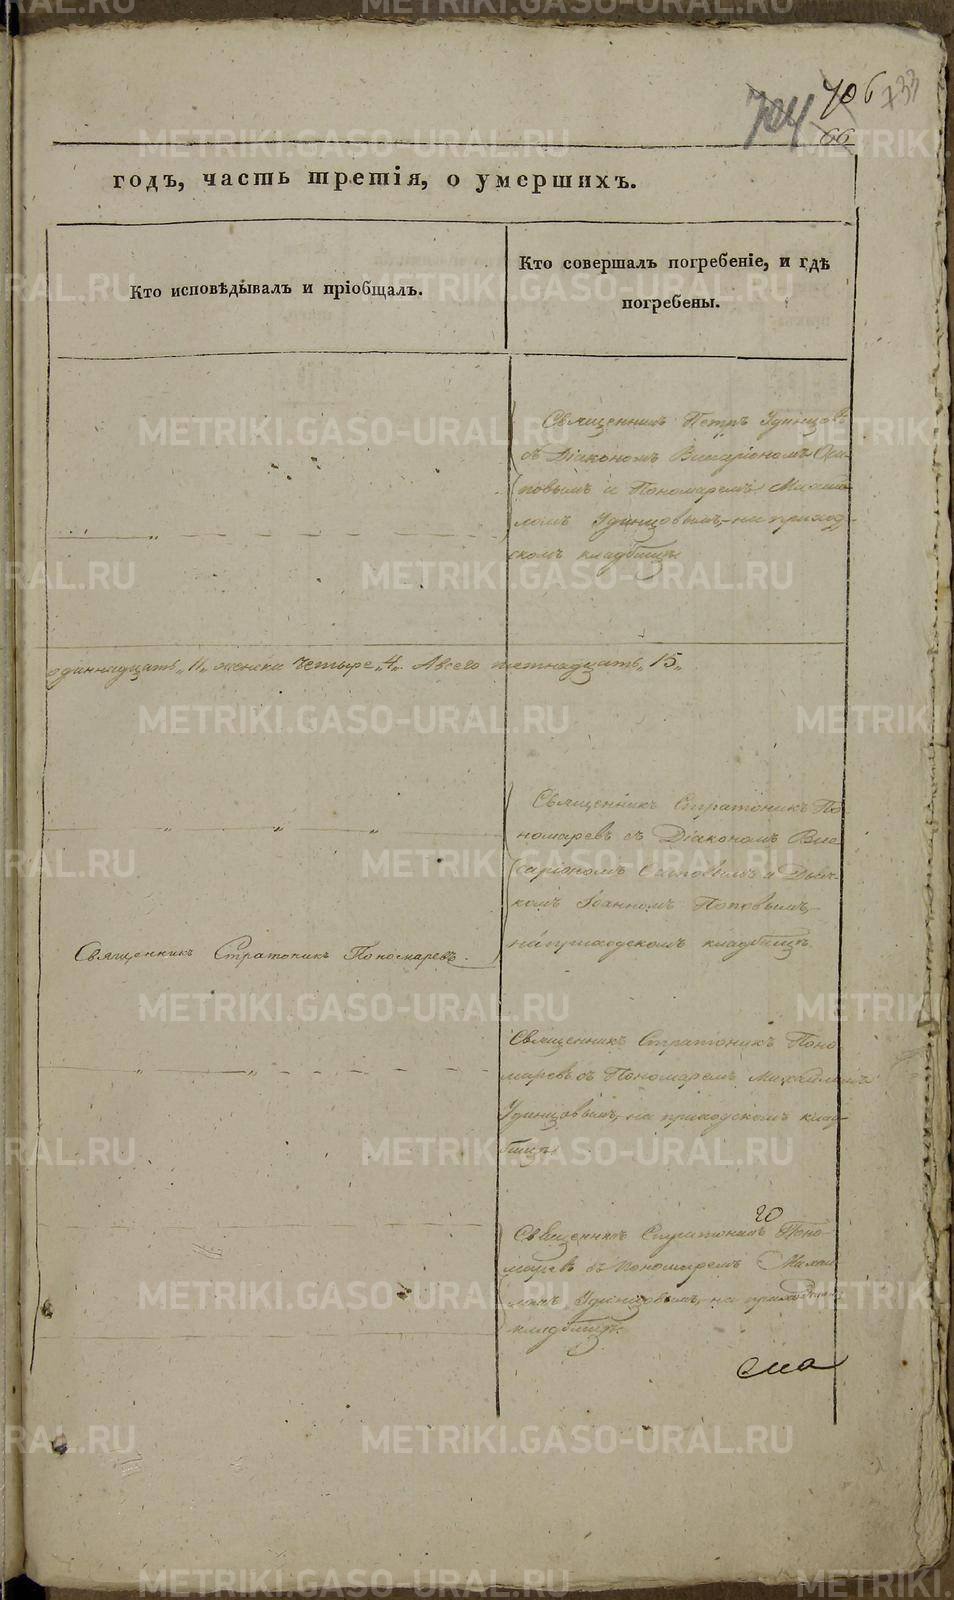 724 706 733
66
годъ, часть третія, о умершихъ.
Кто исповѣдывалъ и пріобщалъ.
Кто совершалъ погребеніе, и гдѣ
погребены.
Священникъ Петръ Удинцовъ
съ Діакономъ
повымъ и Пономаремъ Михаи-
ломъ Удинцовымъ, на приход-
скомъ кладбищѣ
одиннадцать „11„ женска четыре „4„ А всего пятнадцать „15„
Священникъ Стратоникъ По
номаревъ съ Діакономъ Вис
саріономъ и Дьяч-
комъ Іоанномъ Поповымъ,
на приходскомъ кладбищѣ.
Священникъ Стратоникъ Пономаревъ.
Священникъ Стратоникъ Поно
маревъ съ Пономаремъ Михаиломъ
Удинцовымъ, на приходскомъ клад-
бищѣ
Священникъ Стратоникъ Поно-
маревъ съ Пономаремъ Михаи
ломъ Удинцовымъ, на приходскомъ
кладбищѣ.
METRIKI.GASO-URAL.RU